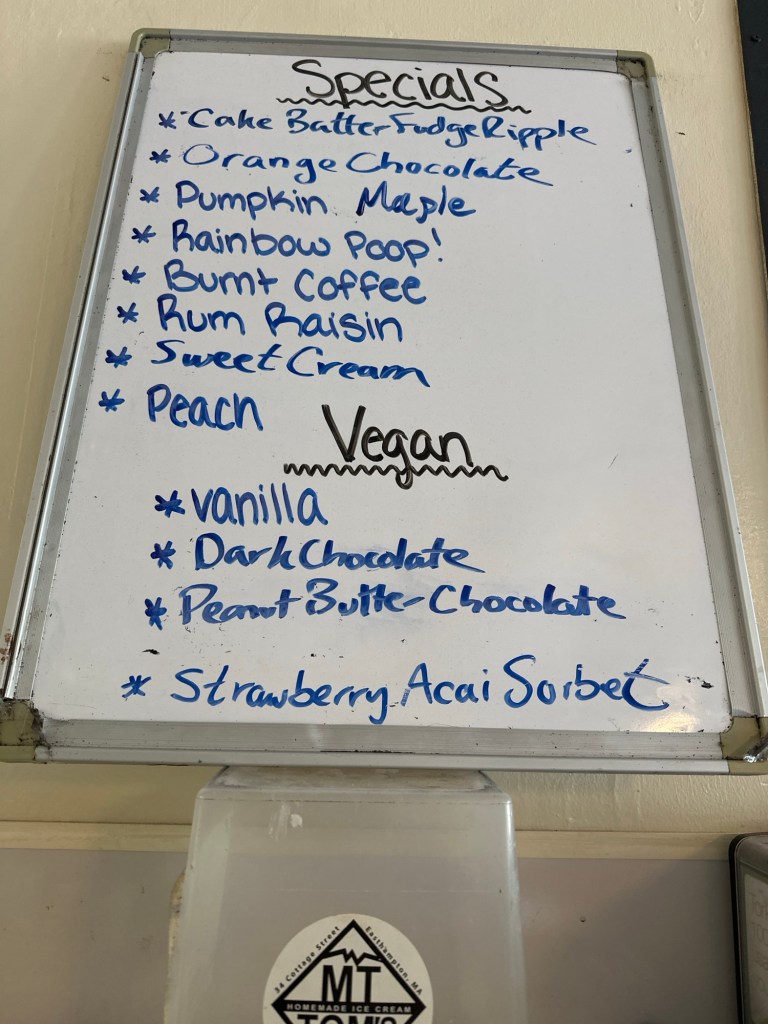 Specials
* Cake Batter Fudge Ripple
* Orange Chocolate
* Pumpkin Maple
* Rainbow Poop!
* Burnt Coffee
* Rum Raisin
* Sweet Cream
* Peach
Vegan
* vanilla
* Dark Chocolate
* Peanut Butter Chocolate
* Strawberry Acai Sorbet
34 Cottage Street Easthampton, MA
MT
HOMEMADE ICE CREAM
TOM'S